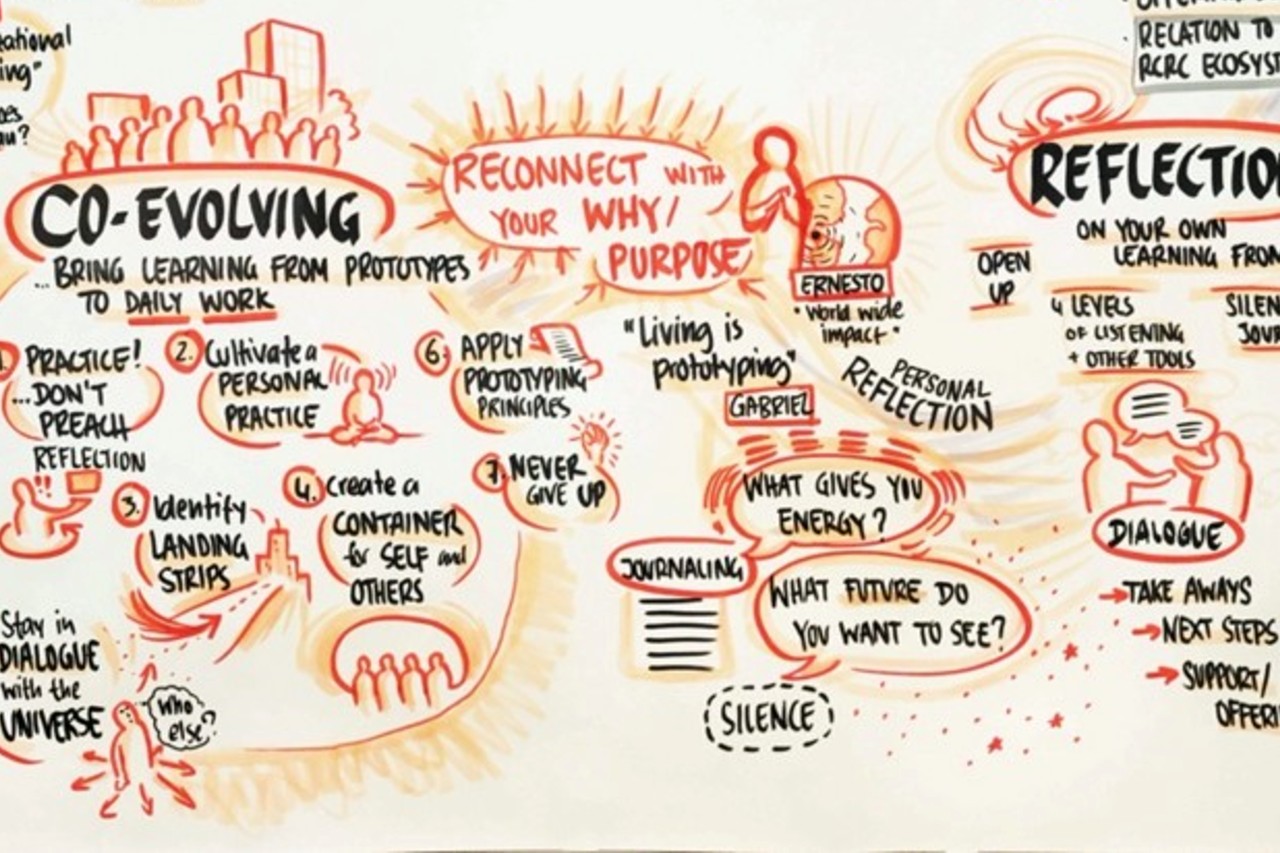 ational
ing"
oes
ou?
CO-EVOLVING
...BRING LEARNING FROM PROTOTYPES
TO DAILY WORK
1. PRACTICE!
...DON'T
PREACH
REFLECTION
2. Cultivate a
PERSONAL
PRACTICE
3. Identify
LANDING
STRIPS
4. Create a
CONTAINER
for SELF and
OTHERS
Stay in
DIALOGUE
with the
UNIVERSE
Who
else?
6. APPLY
PROTOTYPING
PRINCIPLES
7. NEVER
GIVE UP
RECONNECT WITH
YOUR WHY/
PURPOSE
ERNESTO
"World wide
impact"
"Living is
prototyping"
GABRIEL
PERSONAL
REFLECTION
WHAT GIVES YOU
ENERGY?
JOURNALING
WHAT FUTURE DO
YOU WANT TO SEE?
SILENCE
RELATION TO
RCRC ECOSYST
REFLECTION
ON YOUR OWN
LEARNING FROM
OPEN
UP
4 LEVELS
OF LISTENING
+ OTHER TOOLS
SILEN
JOU
DIALOGUE
TAKE AWAYS
NEXT STEPS
SUPPORT/
OFFERI